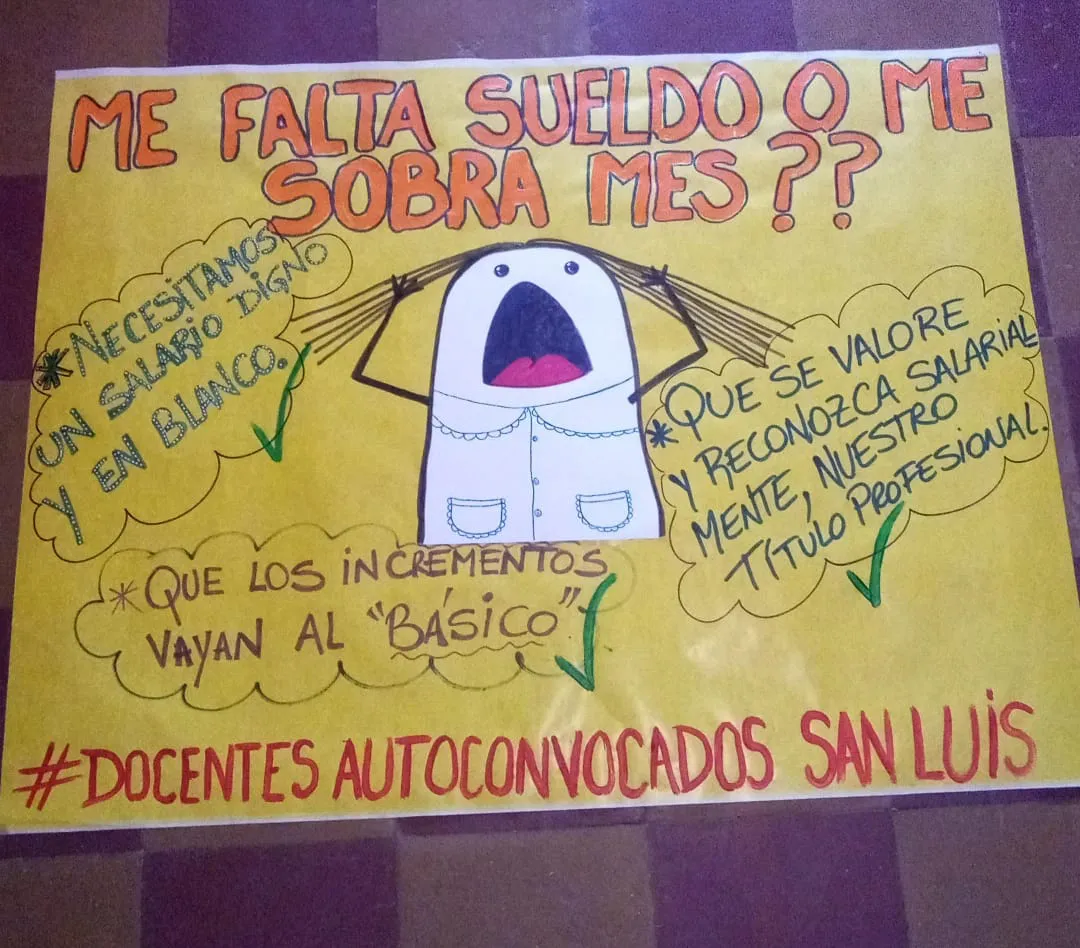 ME FALTA SUELDO O ME
SOBRA MES ??
*NECESITAMOS
UN SALARIO DIGNO
Y EN BLANCO.
*QUE SE VALORE
Y RECONOZCA SALARIAL
MENTE, NUESTRO
TÍTULO PROFESIONAL.
*QUE LOS INCREMENTOS
VAYAN AL "BÁSICO"
#DOCENTES AUTOCONVOCADOS SAN LUIS